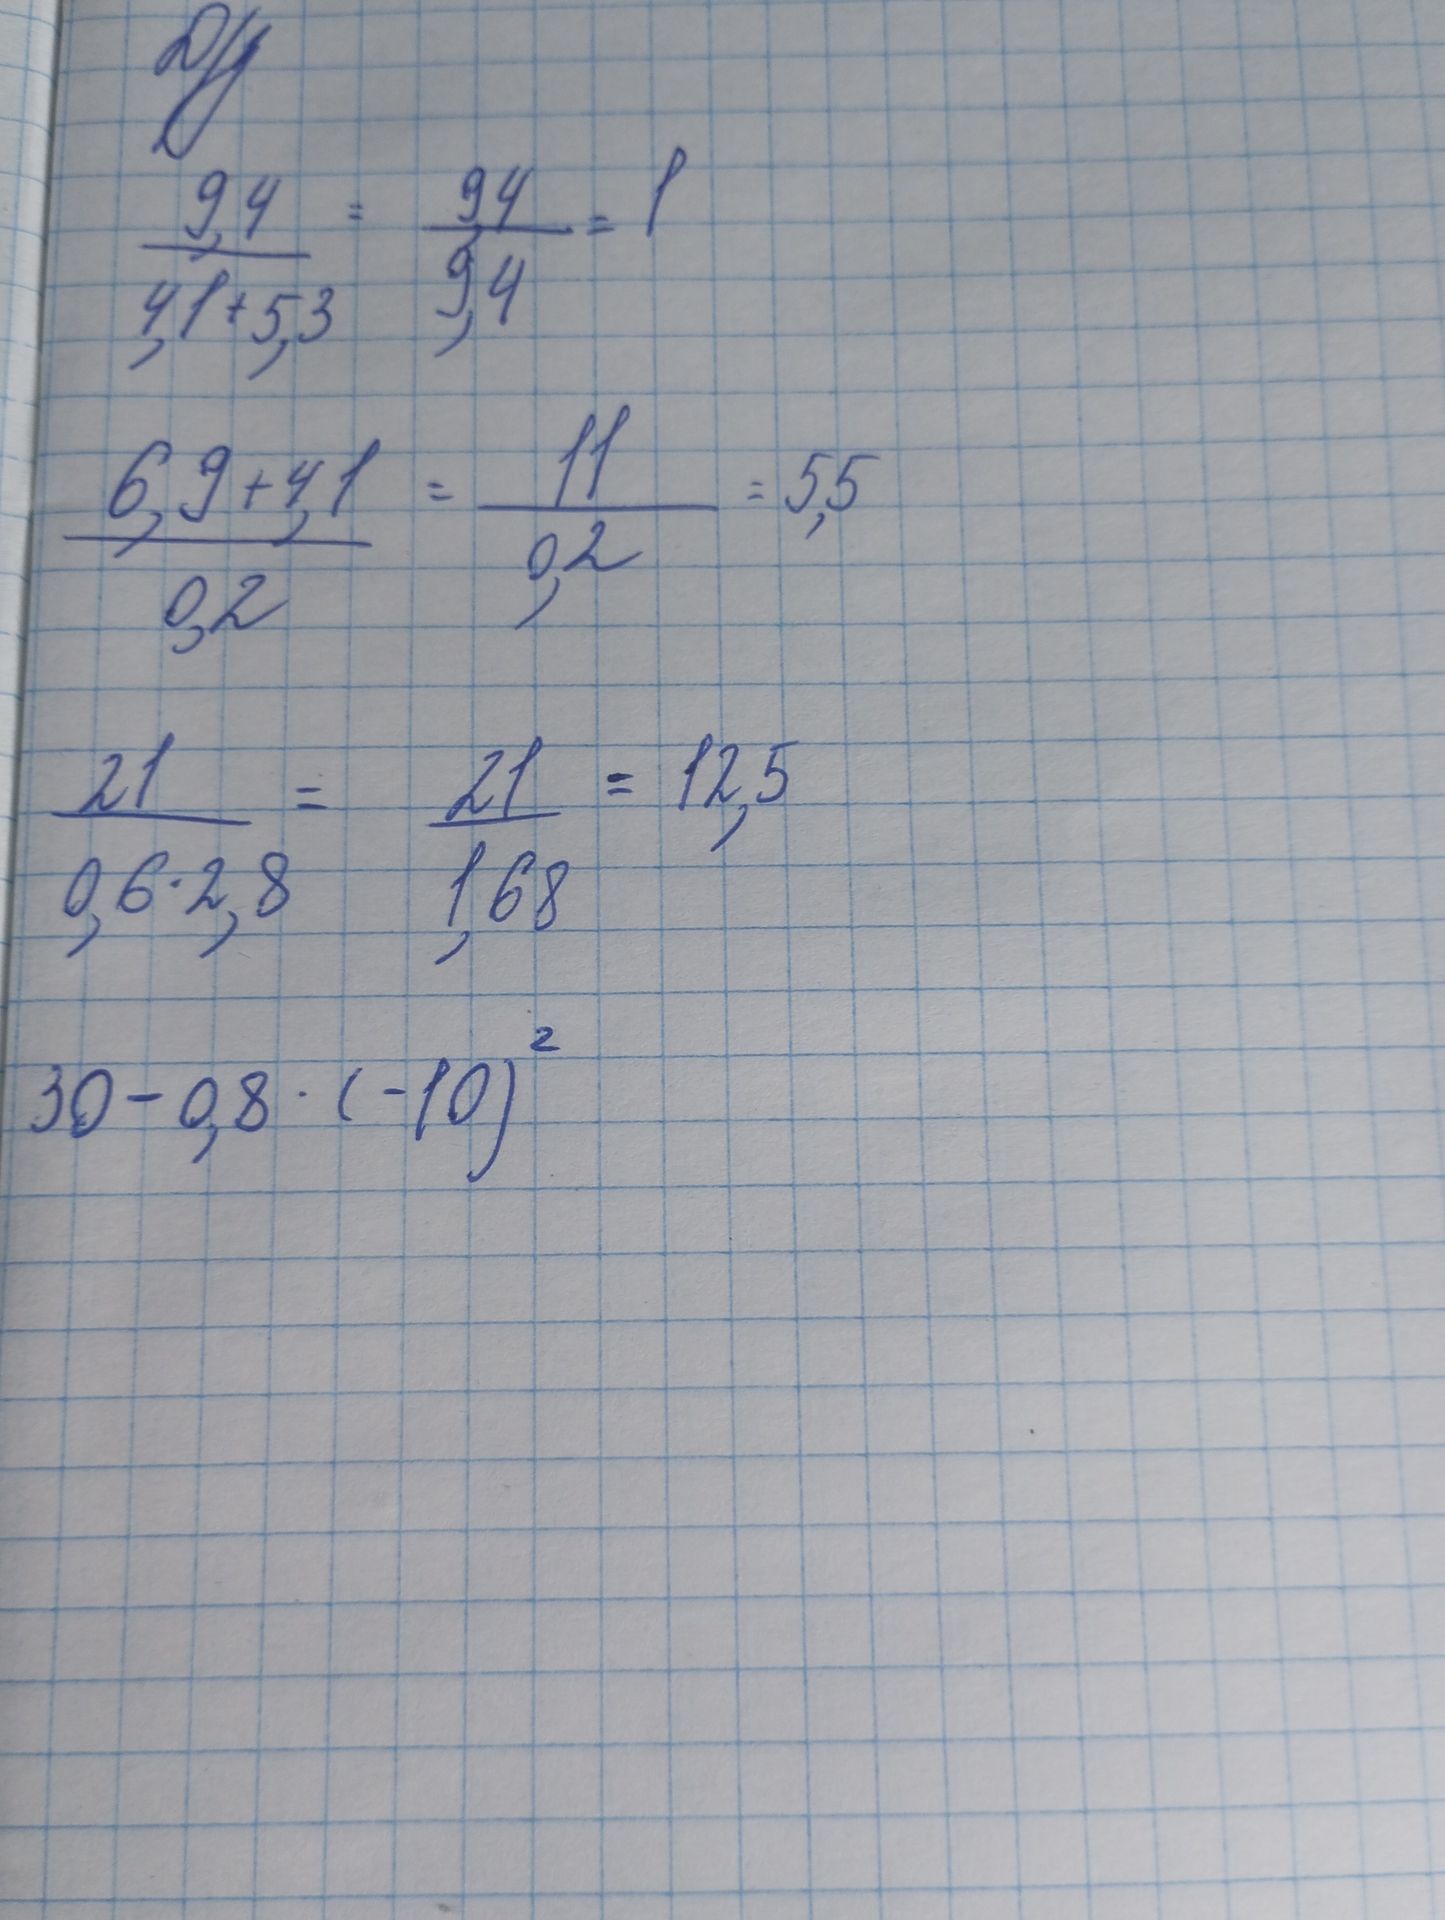 Д/з
9,4 / 4,1+5,3 = 9,4 / 9,4 = 1
6,9+4,1 / 0,2 = 11 / 0,2 = 5,5
21 / 0,6·2,8 = 21 / 1,68 = 12,5
30-0,8·(-10)²